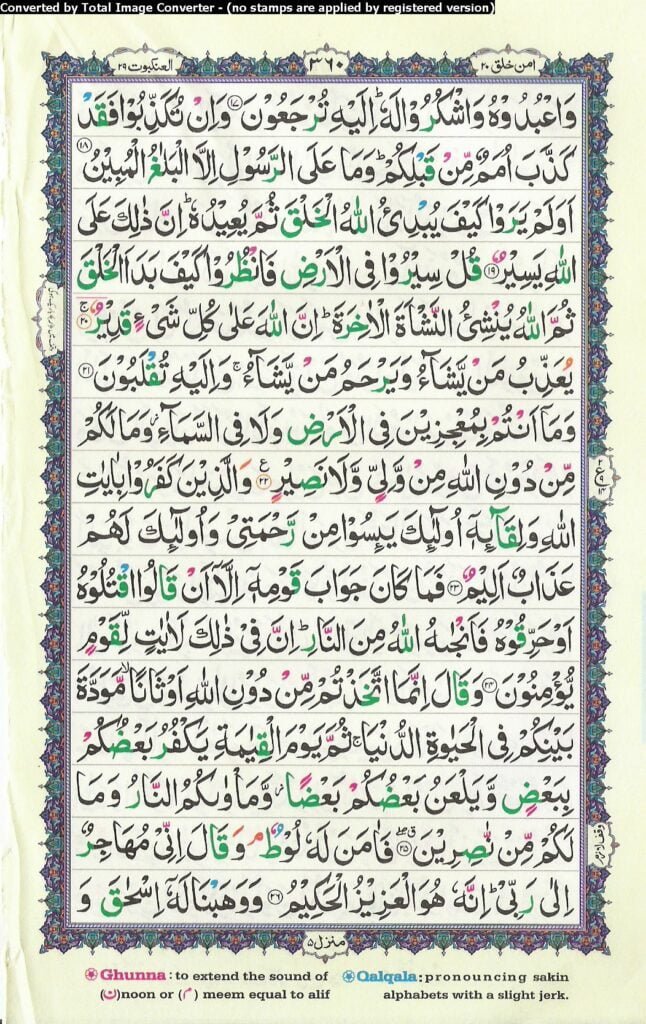 Converted by Total Image Converter - (no stamps are applied by registered version)
امن خلق ۲۰
۳۶۰
العنكبوت ۲۹
وَاعْبُدُوْهُ وَاشْكُرُوْا لَهٗؕ اِلَيْهِ تُرْجَعُوْنَ ⑰ وَاِنْ تُكَذِّبُوْا فَقَدْ
كَذَّبَ اُمَمٌ مِّنْ قَبْلِكُمْؕ وَمَا عَلَى الرَّسُوْلِ اِلَّا الْبَلٰغُ الْمُبِيْنُ ⑱
اَوَلَمْ يَرَوْا كَيْفَ يُبْدِئُ اللّٰهُ الْخَلْقَ ثُمَّ يُعِيْدُهٗؕ اِنَّ ذٰلِكَ عَلَى
اللّٰهِ يَسِيْرٌ ⑲ قُلْ سِيْرُوْا فِى الْاَرْضِ فَانْظُرُوْا كَيْفَ بَدَاَ الْخَلْقَ
ثُمَّ اللّٰهُ يُنْشِئُ النَّشْاَةَ الْاٰخِرَةَؕ اِنَّ اللّٰهَ عَلٰى كُلِّ شَىْءٍ قَدِيْرٌۚ ⑳
يُعَذِّبُ مَنْ يَّشَآءُ وَيَرْحَمُ مَنْ يَّشَآءُۚ وَاِلَيْهِ تُقْلَبُوْنَ ㉑
وَمَاۤ اَنْتُمْ بِمُعْجِزِيْنَ فِى الْاَرْضِ وَلَا فِى السَّمَآءِؗ وَمَا لَكُمْ
مِّنْ دُوْنِ اللّٰهِ مِنْ وَّلِىٍّ وَّلَا نَصِيْرٍ ㉒ وَالَّذِيْنَ كَفَرُوْا بِاٰيٰتِ
اللّٰهِ وَلِقَآئِهٖۤ اُولٰٓئِكَ يَئِسُوْا مِنْ رَّحْمَتِىْ وَاُولٰٓئِكَ لَهُمْ
عَذَابٌ اَلِيْمٌ ㉓ فَمَا كَانَ جَوَابَ قَوْمِهٖۤ اِلَّاۤ اَنْ قَالُوا اقْتُلُوْهُ
اَوْ حَرِّقُوْهُ فَاَنْجٰىهُ اللّٰهُ مِنَ النَّارِؕ اِنَّ فِىْ ذٰلِكَ لَاٰيٰتٍ لِّقَوْمٍ
يُّؤْمِنُوْنَ ㉔ وَقَالَ اِنَّمَا اتَّخَذْتُمْ مِّنْ دُوْنِ اللّٰهِ اَوْثَانًاۙ مَّوَدَّةَ
بَيْنِكُمْ فِى الْحَيٰوةِ الدُّنْيَاۚ ثُمَّ يَوْمَ الْقِيٰمَةِ يَكْفُرُ بَعْضُكُمْ
بِبَعْضٍ وَّيَلْعَنُ بَعْضُكُمْ بَعْضًاؗ وَّمَاْوٰىكُمُ النَّارُ وَمَا
لَكُمْ مِّنْ نّٰصِرِيْنَ ㉕ فَاٰمَنَ لَهٗ لُوْطٌۘ وَقَالَ اِنِّىْ مُهَاجِرٌ
اِلٰى رَبِّىْؕ اِنَّهٗ هُوَ الْعَزِيْزُ الْحَكِيْمُ ㉖ وَوَهَبْنَا لَهٗۤ اِسْحٰقَ وَ
منزل ۵
وقف لازم
Ghunna: to extend the sound of (ن) noon or (م) meem equal to alif
Qalqala: pronouncing sakin alphabets with a slight jerk.